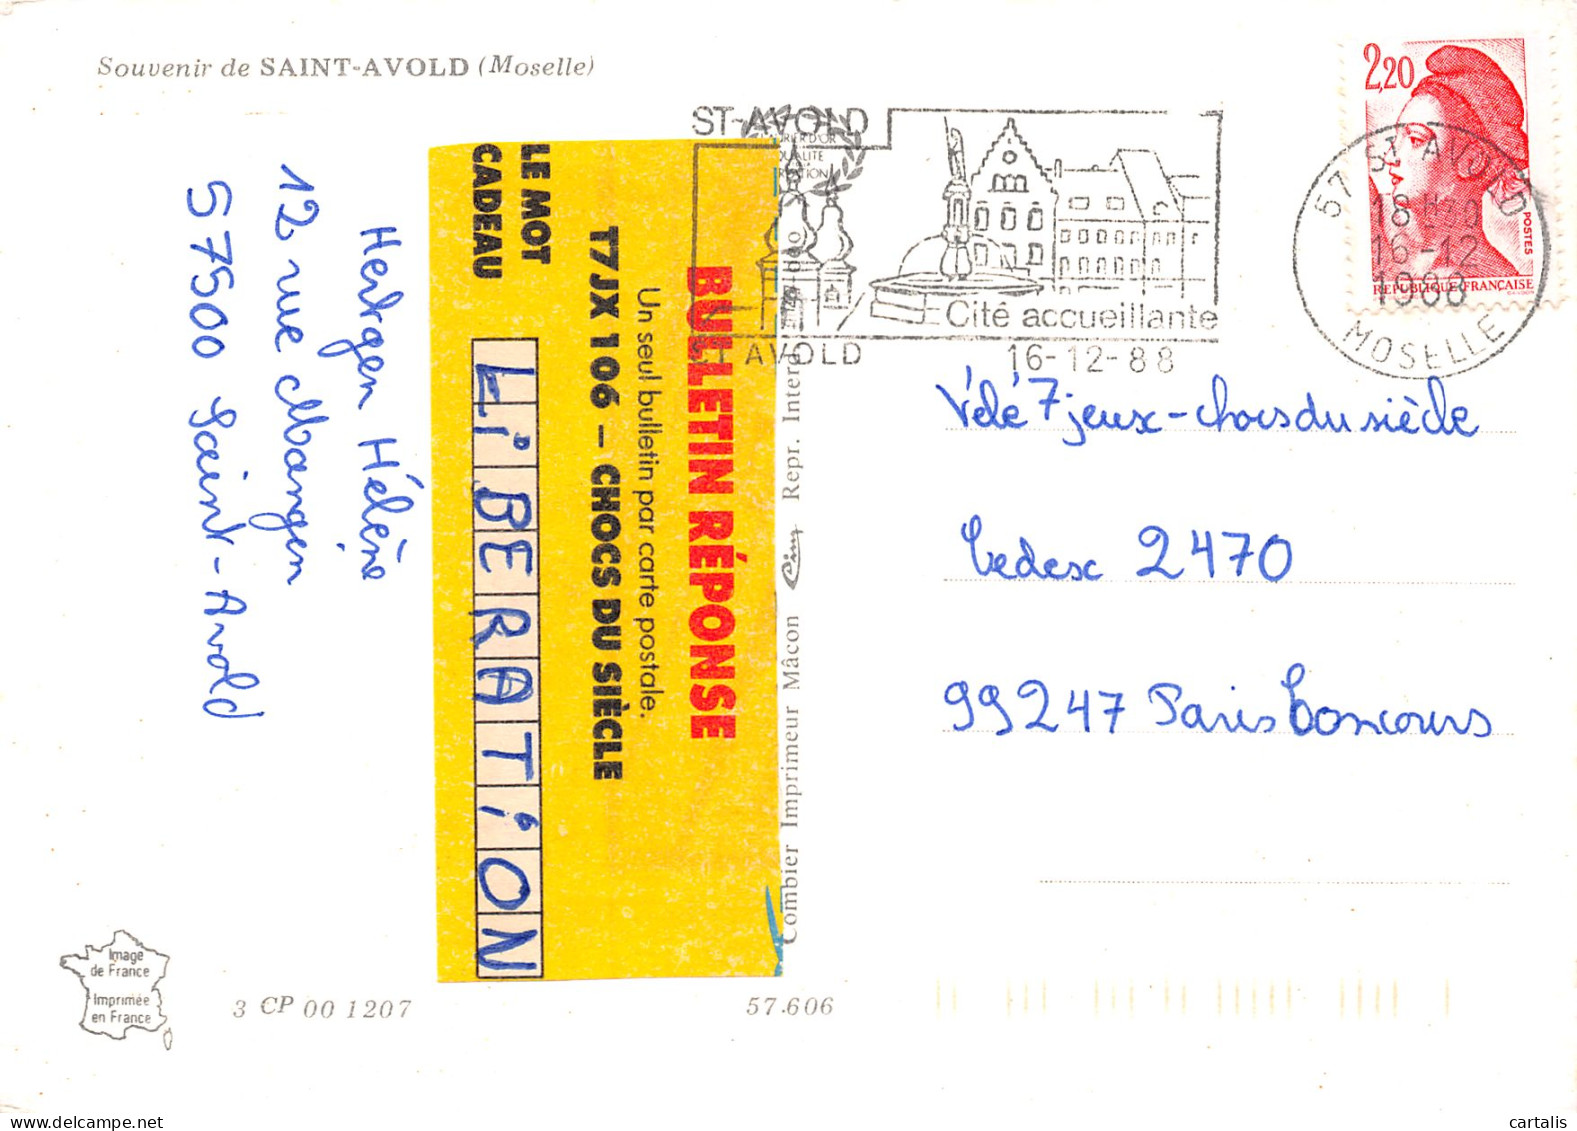 Souvenir de SAINT-AVOLD (Moselle)
2,20
POSTES
RÉPUBLIQUE FRANÇAISE
57 ST AVOLD
16-12
1988
MOSELLE
ST-AVOLD
Cité accueillante
ST AVOLD
16-12-88
Herkgen Hélène
12 rue Mangen
57500 Saint-Avold
BULLETIN RÉPONSE
Un seul bulletin par carte postale.
T7JX 106 – CHOCS DU SIÈCLE
LE MOT
CADEAU
LiBERATiON
Combier Imprimeur Mâcon Cim Repr. Interd
Vélé 7 jeux-chocs du siècle
Cedex 2470
99247 Paris Concours
Image
de France
Imprimée
en France
3 CP 00 1207
57.606
cartalis